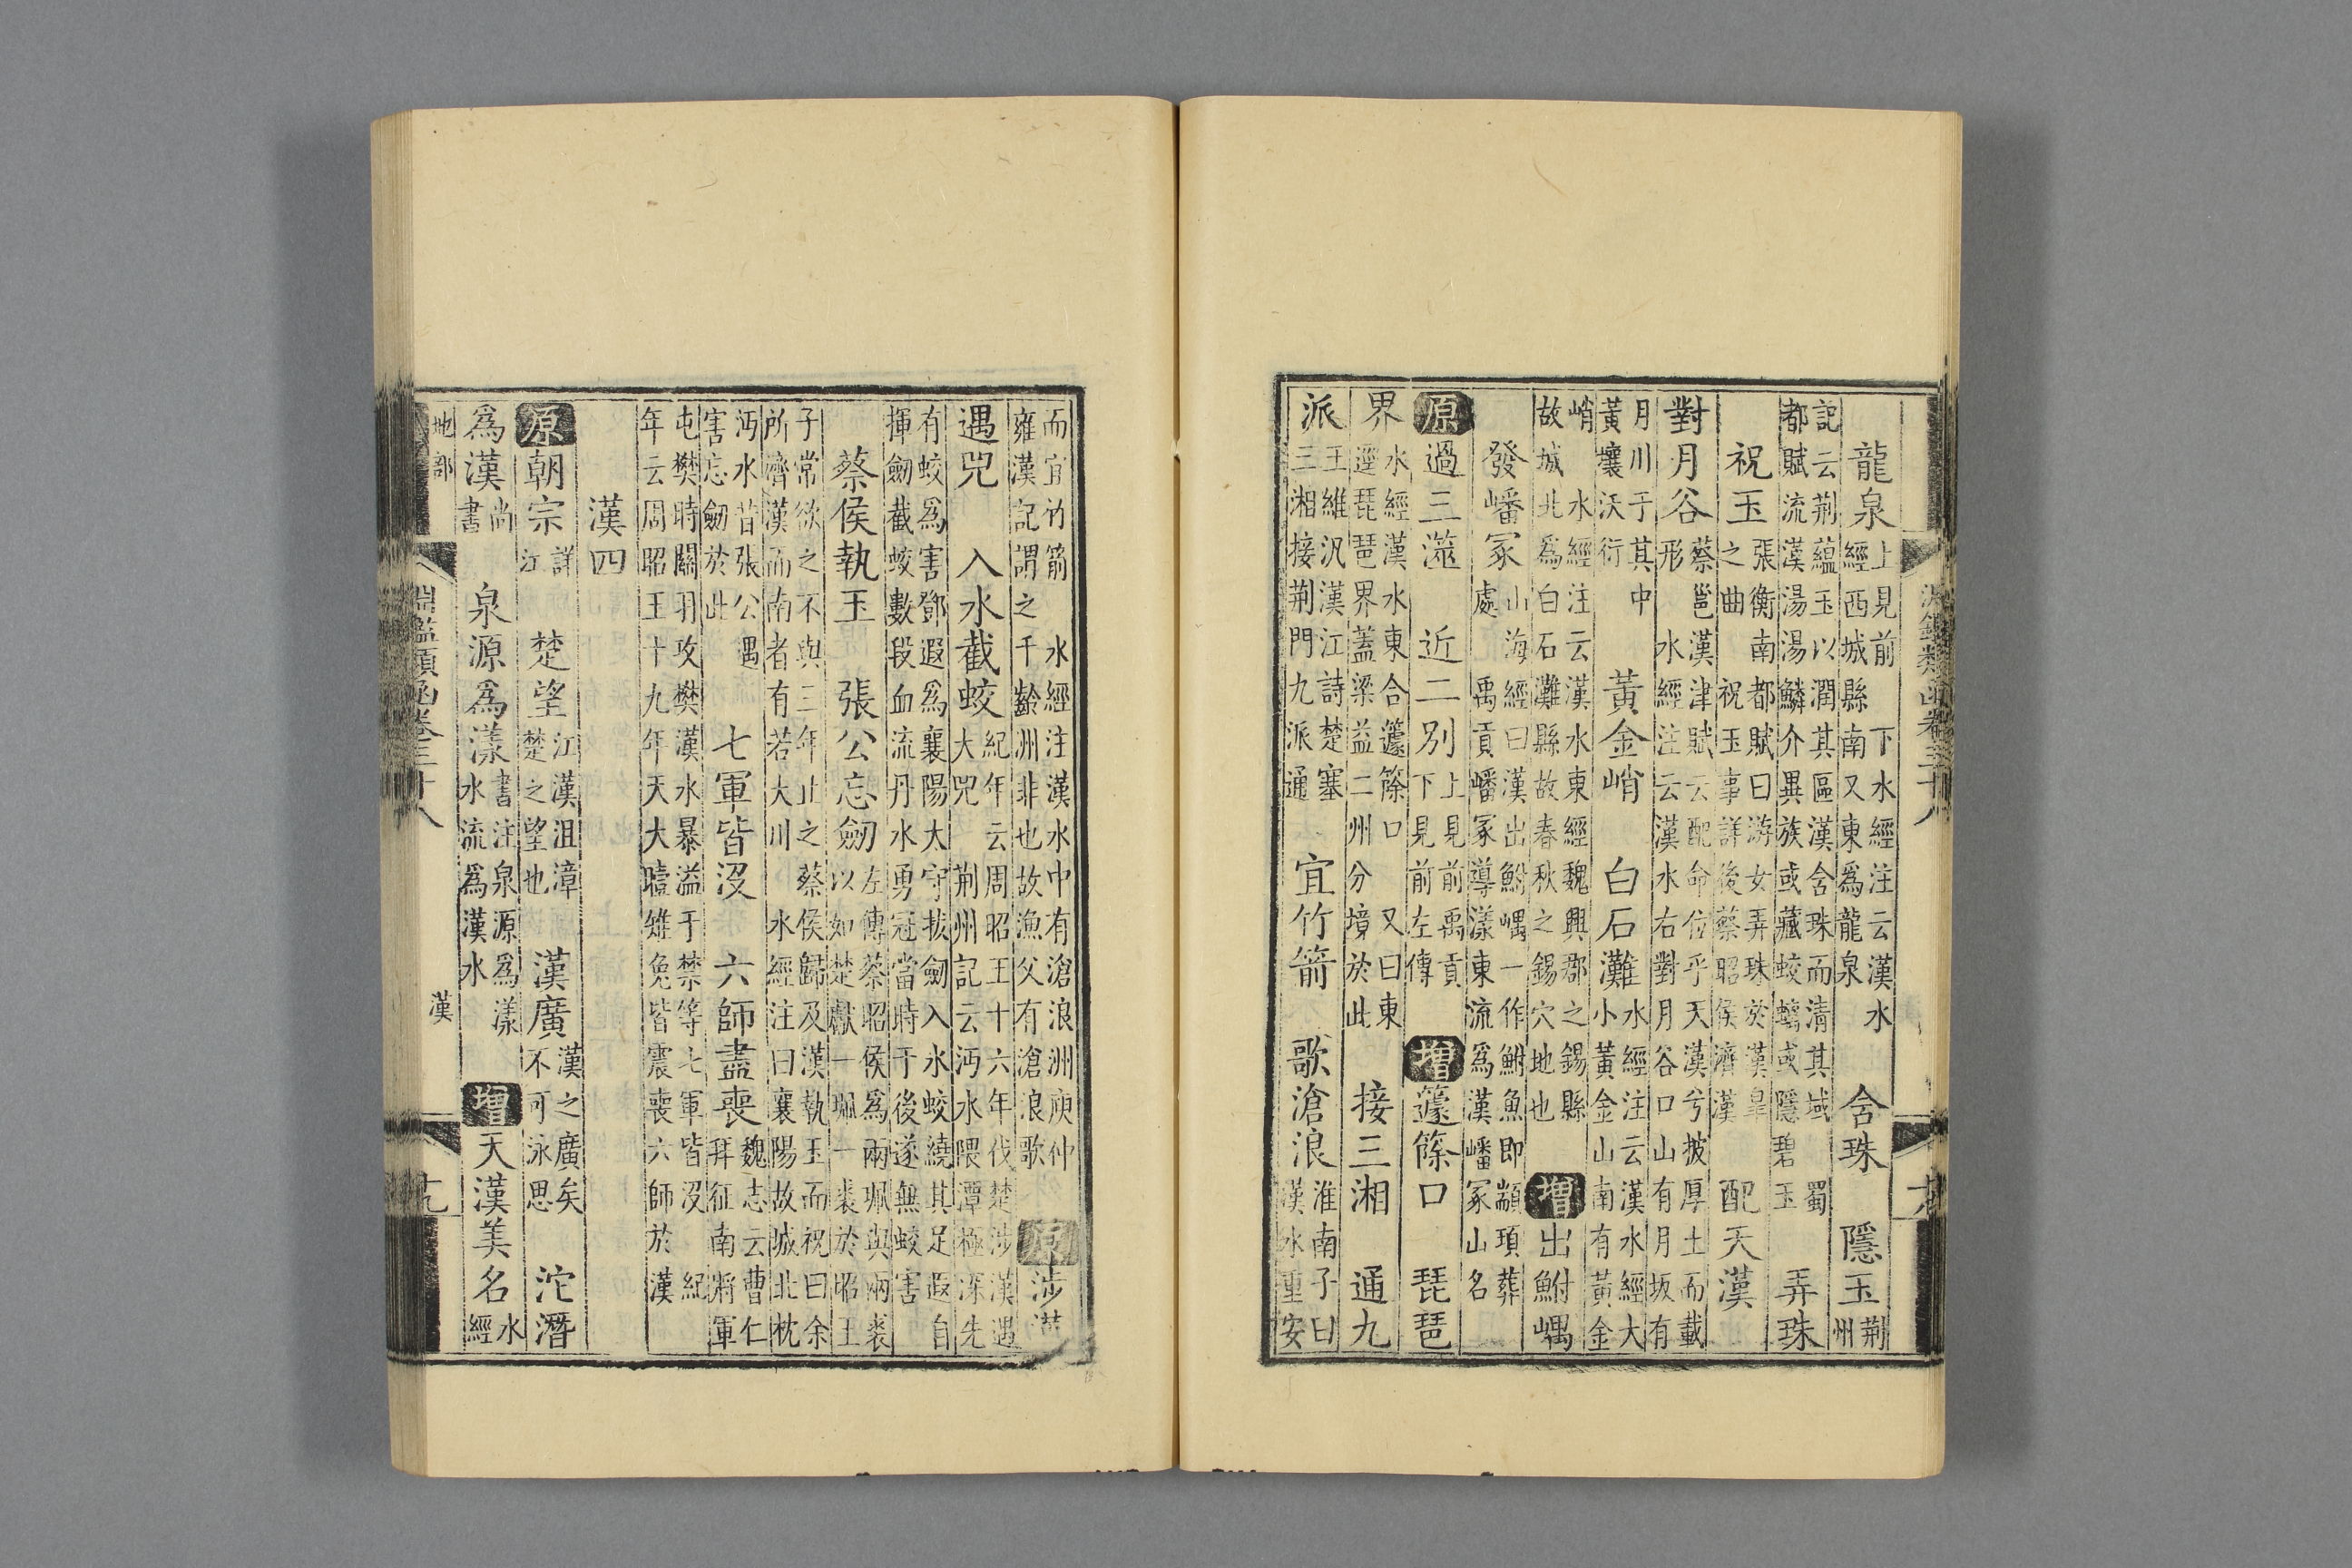 淵鑑類函卷三十八
龍泉上見前 下水經注云漢水經西城縣南又東爲龍泉 含珠 隱玉荆州
記云荆蘊玉以潤其區漢含珠而清其域 蜀都賦流漢湯湯鱗介異族或藏蛟螭或隱碧玉 弄珠
祝玉張衡南都賦曰游女弄珠於漢臯之曲 祝玉事詳後蔡昭侯濟漢 配天漢
對月谷蔡邕漢津賦云配命位乎天漢兮披厚土而載形 水經注云漢水右對月谷口山有月坂有
月川于其中黃壤沃衍 黃金峭 白石灘水經注云漢水經大小黃金山南有黃金
峭故城北 水經注云漢水東經魏興郡之錫縣爲白石灘縣故春秋之錫穴地也 增出鮒嵎
發嶓冢山海經曰漢出鮒嵎一作鮒魚即顓頊葬處 禹貢嶓冢導漾東流爲漢嶓冢山名
原過三澨 近二別上見前禹貢下見前左傳 增籧篨口 琵琶
界水經漢水東合籧篨口 又曰東逕琵琶界蓋梁益二州分境於此 接三湘 通九
派王維汎漢江詩楚塞三湘接荆門九派通 宜竹箭 歌滄浪淮南子曰漢水重安
而宜竹箭 水經注漢水中有滄浪洲庾仲雍漢記謂之千齡洲非也故漁父有滄浪歌 原涉漢
遇兕 入水截蛟紀年云周昭王十六年伐楚涉漢遇大兕 荆州記云沔水隈潭極深先
有蛟爲害鄧遐爲襄陽大守拔劒入水蛟繞其足遐自揮劒截蛟數段血流丹水勇冠當時于後遂無蛟害
蔡侯執玉 張公忘劒左傳蔡昭侯爲兩珮與兩裘以如楚獻一珮一裘於昭王
子常欲之不與三年止之蔡侯歸及漢執玉而祝曰余所濟漢而南者有若大川 水經注曰襄陽故城北枕
沔水昔張公遇害忘劒於此 七軍皆沒 六師盡喪魏志云曹仁拜征南將軍
屯樊時關羽攻樊漢水暴溢于禁等七軍皆沒 紀年云周昭王十九年天大曀雉兔皆震喪六師於漢
漢四
原朝宗詳江 楚望江漢沮漳楚之望也 漢廣漢之廣矣不可泳思 沱潛
爲漢尚書 泉源爲漾書注泉源爲漾水流爲漢水 增天漢美名水經
地部 淵鑑類函卷三十八 漢 十九